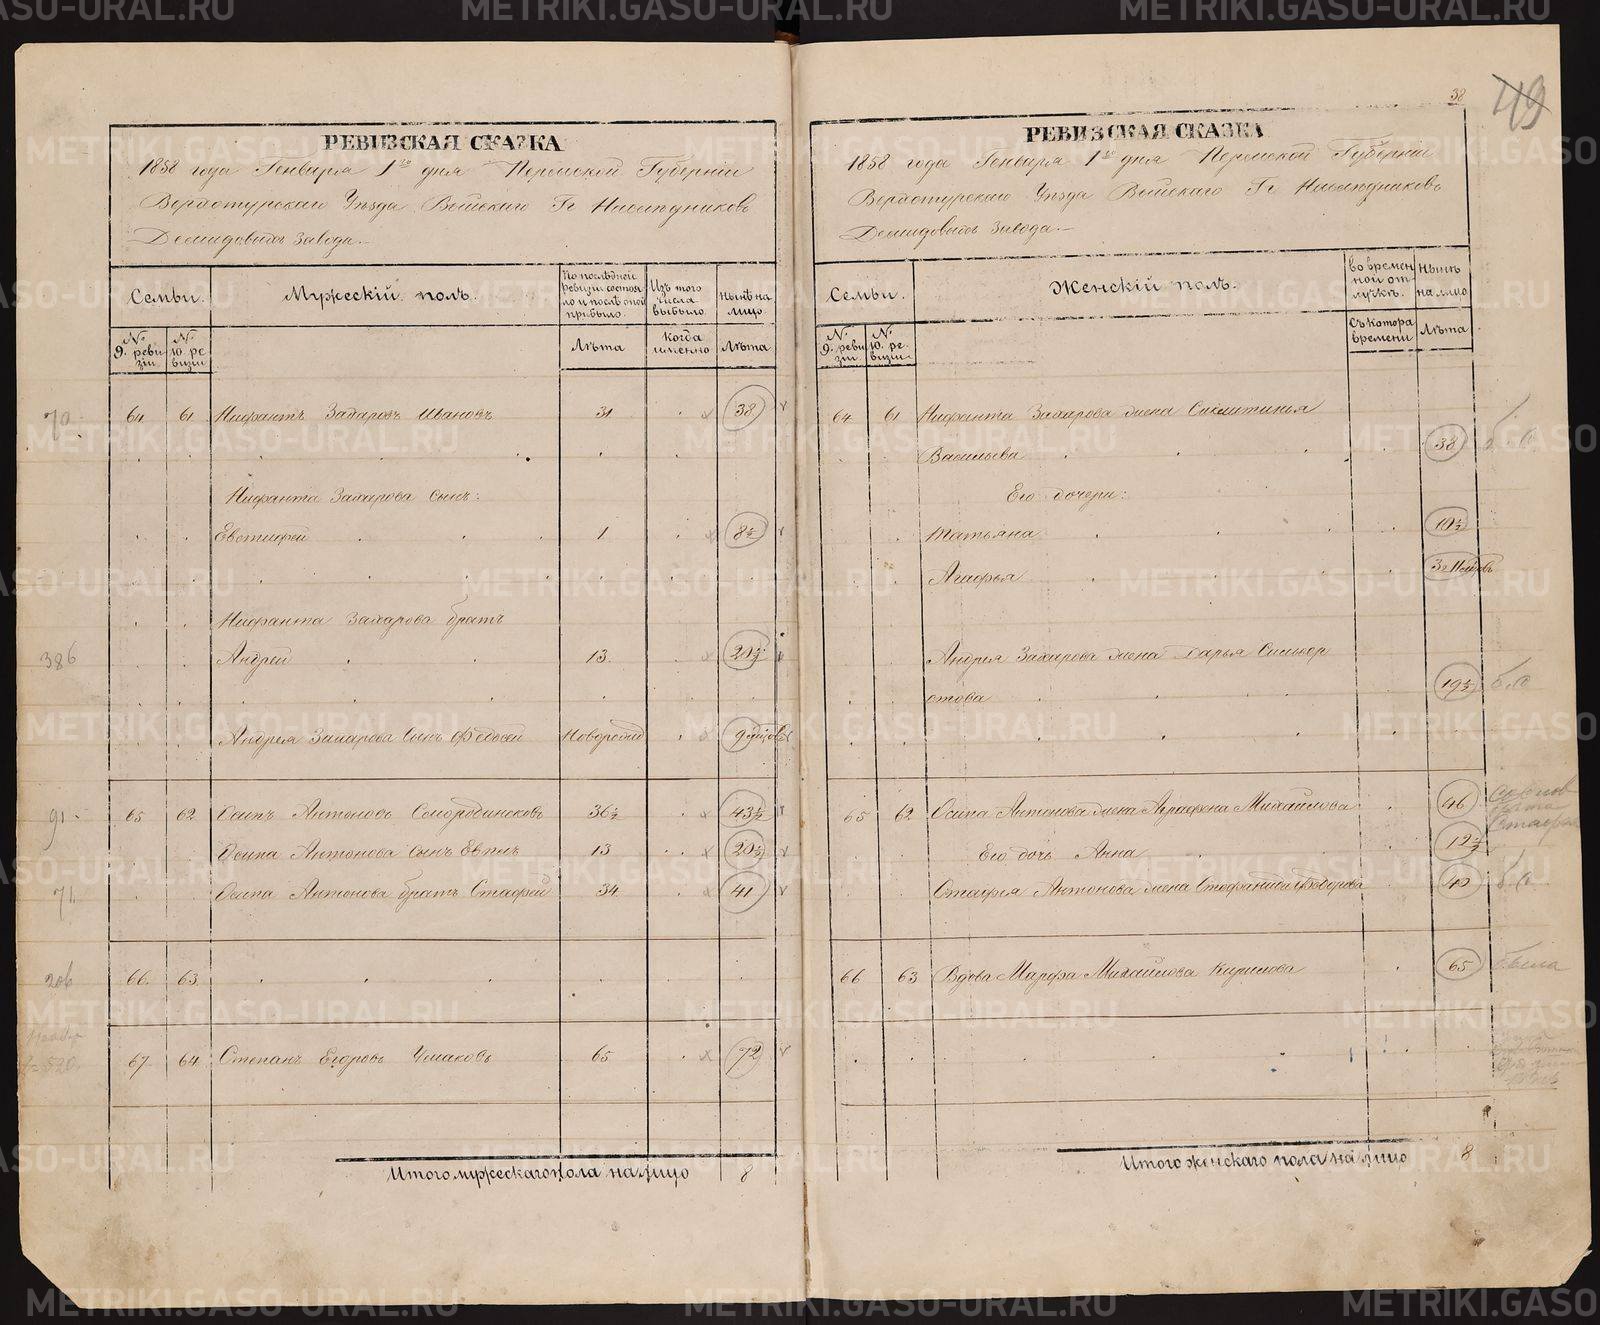 38
49
РЕВИЗСКАЯ СКАЗКА
1858 года Генваря 1го дня Пермской Губернiи
Верхотурскаго Уѣзда Выйскаго Гг Наслѣдниковъ
Демидовыхъ Завода.
Семьи.
Мужескiй полъ.
По послѣдней ревизiи состояло и послѣ оной прибыло.
Изъ того числа выбыло
Нынѣ на лицо
№ 9. ревизiи
№ 10. ревизiи
Лѣта
Когда именно
Лѣта
70
64 61 Нифантъ Захаровъ Ивановъ 31 38
Нифанта Захарова сынъ:
Евстифей 1 8½
Нифанта Захарова братъ
386
Андрей 13. 20½
Андрея Захарова Сынъ Федосей Новорожд 9 мцовъ
91
65 62 Осипъ Антоновъ Смородинсковъ 36½ 43½
Осипа Антонова Сынъ Евплъ 13 20½
71
Осипа Антонова братъ Стафей 34 41
206
66. 63.
67. 64 Степанъ Егоровъ Ушаковъ 65 72
520
Итого мужескаго пола на лицо 8
РЕВИЗСКАЯ СКАЗКА
1858 года Генваря 1го дня Пермской Губернiи
Верхотурскаго Уѣзда Выйскаго Гг Наслѣдниковъ
Демидовыхъ Завода.
Семьи.
Женскiй полъ.
во временной отлучкѣ.
Нынѣ на лицо
№ 9. ревизiи
№ 10. ревизiи
Съ котора времени
Лѣта
64 61 Нифанта Захарова жена Сиклитинья
Васильева 38
Его дочери:
Татьяна 10½
Агафья
Андрея Захарова жена Дарья Силивер
стова 19½
65 62 Осипа Антонова жена Аграфена Михайлова 46
Его дочь Анна 12½
Стафея Антонова жена Стефанида Федорова 40
66 63 Вдова Марфа Михайлова Карпова 65
была
Итого женскаго пола на лицо 8
METRIKI.GASO-URAL.RU